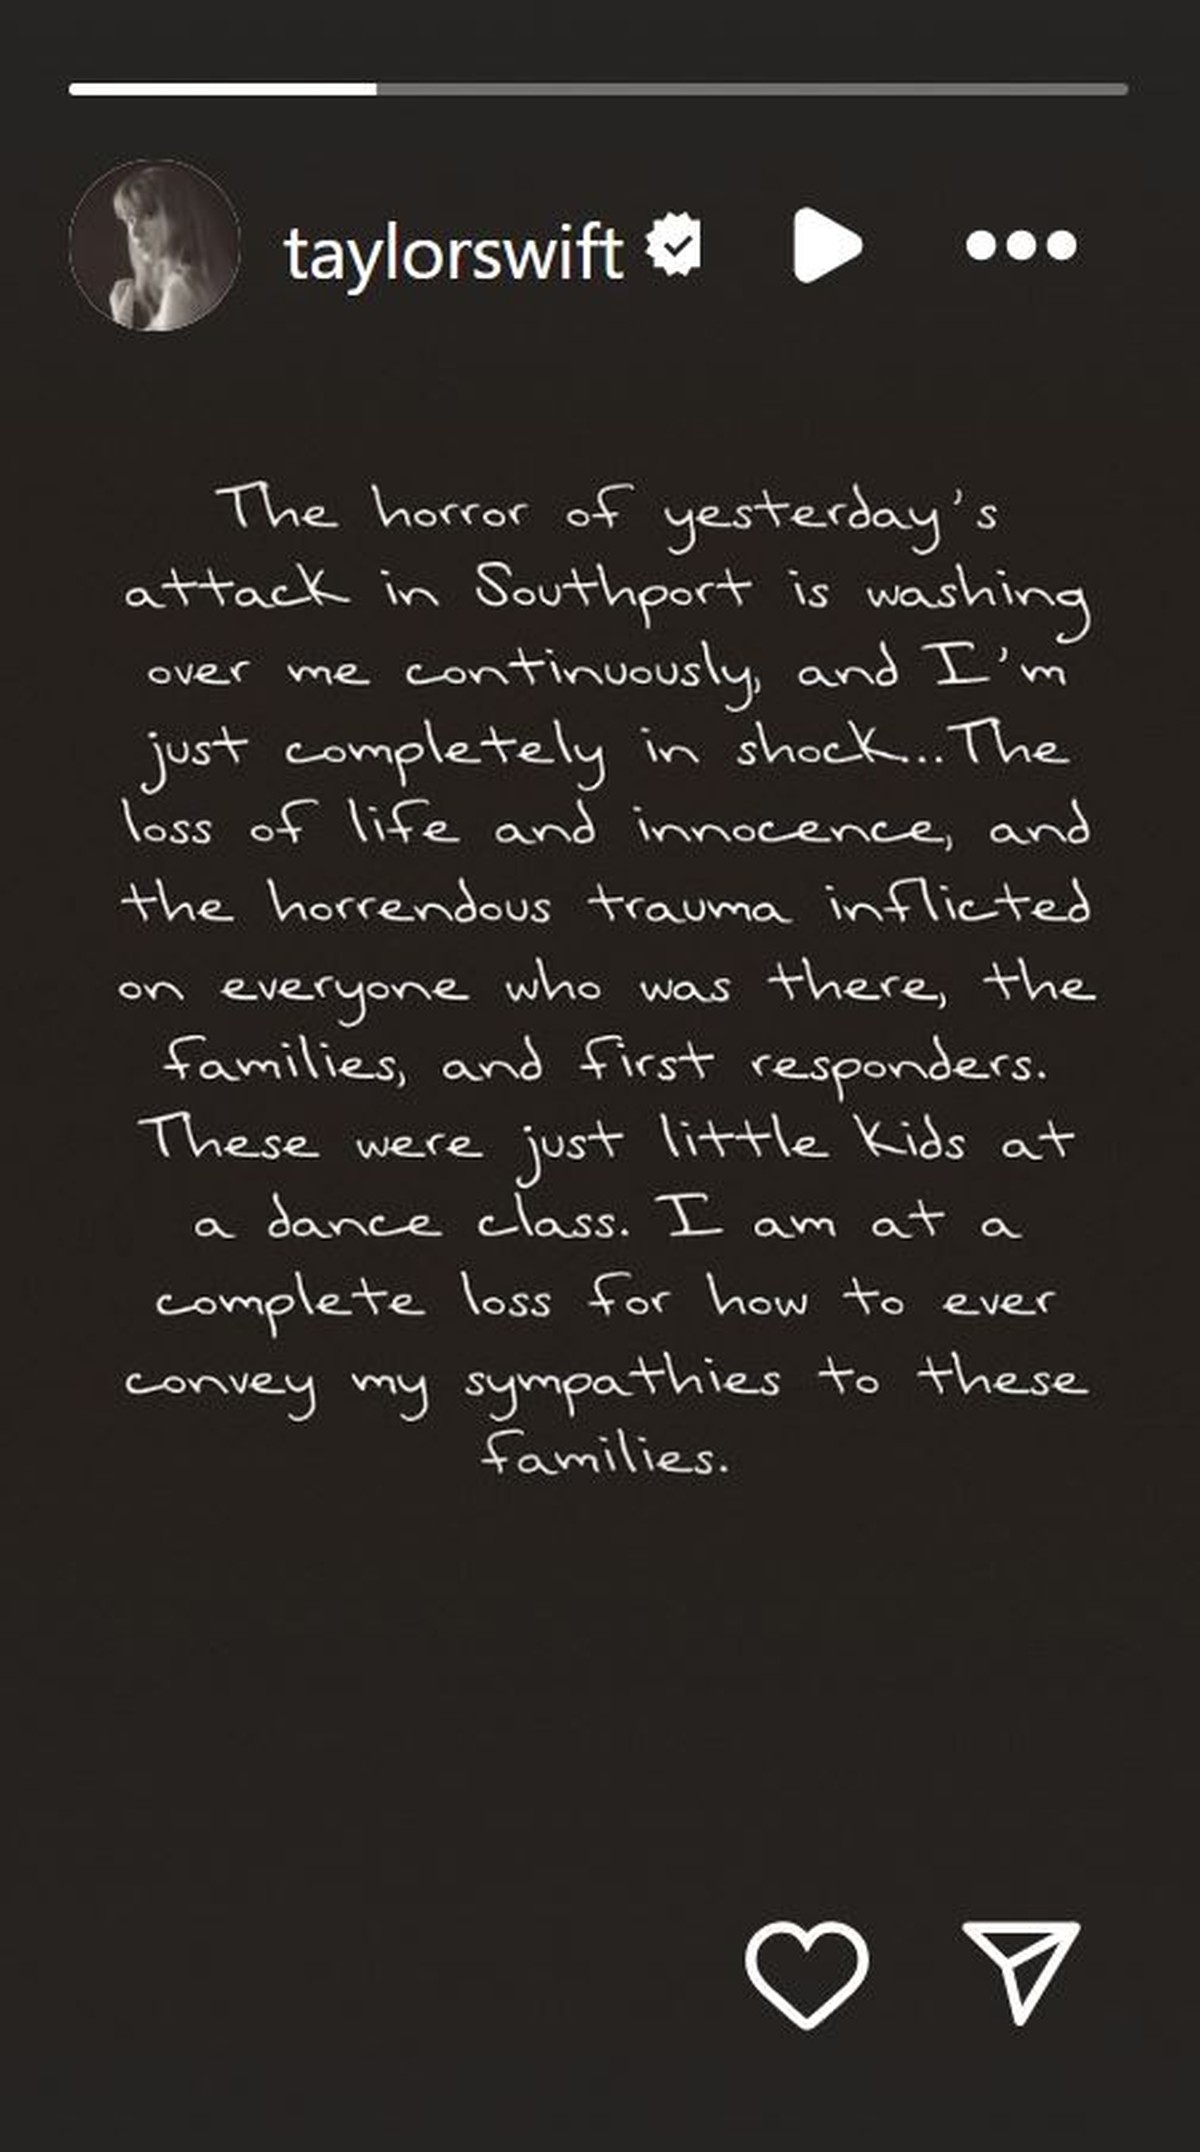 taylorswift
The horror of yesterday's
attack in Southport is washing
over me continuously, and I'm
just completely in shock...The
loss of life and innocence, and
the horrendous trauma inflicted
on everyone who was there, the
families, and first responders.
These were just little kids at
a dance class. I am at a
complete loss for how to ever
convey my sympathies to these
families.